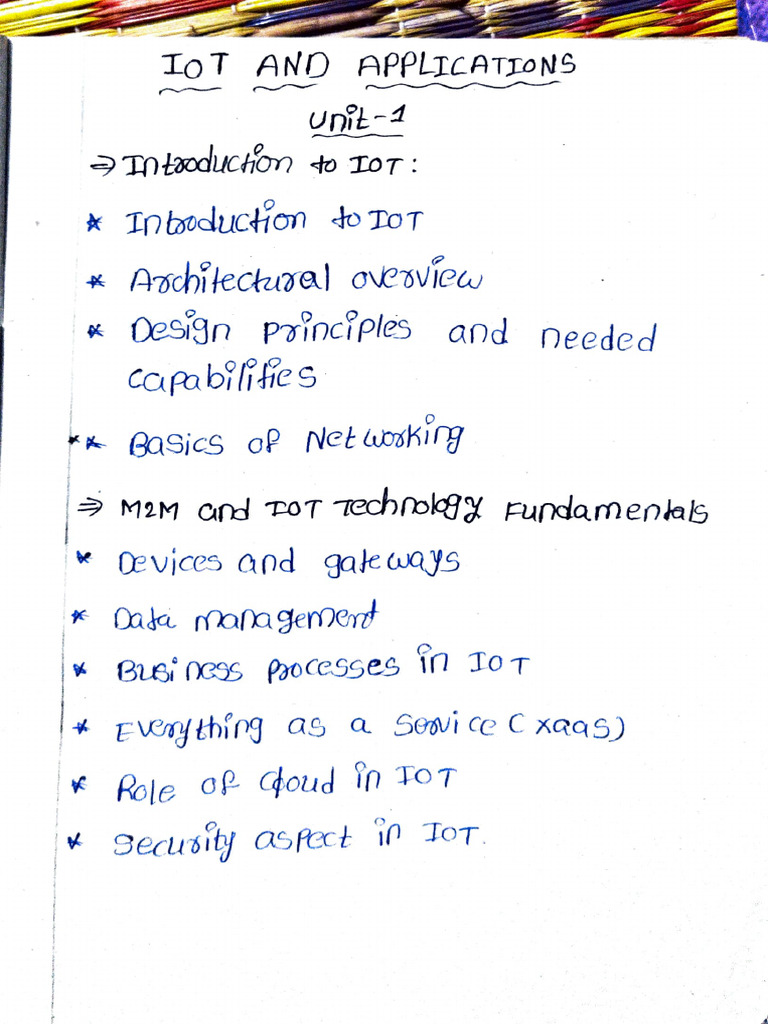 IOT AND APPLICATIONS
Unit-1
⇒ Introduction to IOT:
* Introduction to IOT
* Architectural overview
* Design principles and needed
capabilities
* Basics of Networking
⇒ M2M and IOT Technology Fundamentals
* Devices and gateways
* Data management
* Business processes in IOT
* Everything as a Service (xaas)
* Role of cloud in IOT
* Security aspect in IOT.